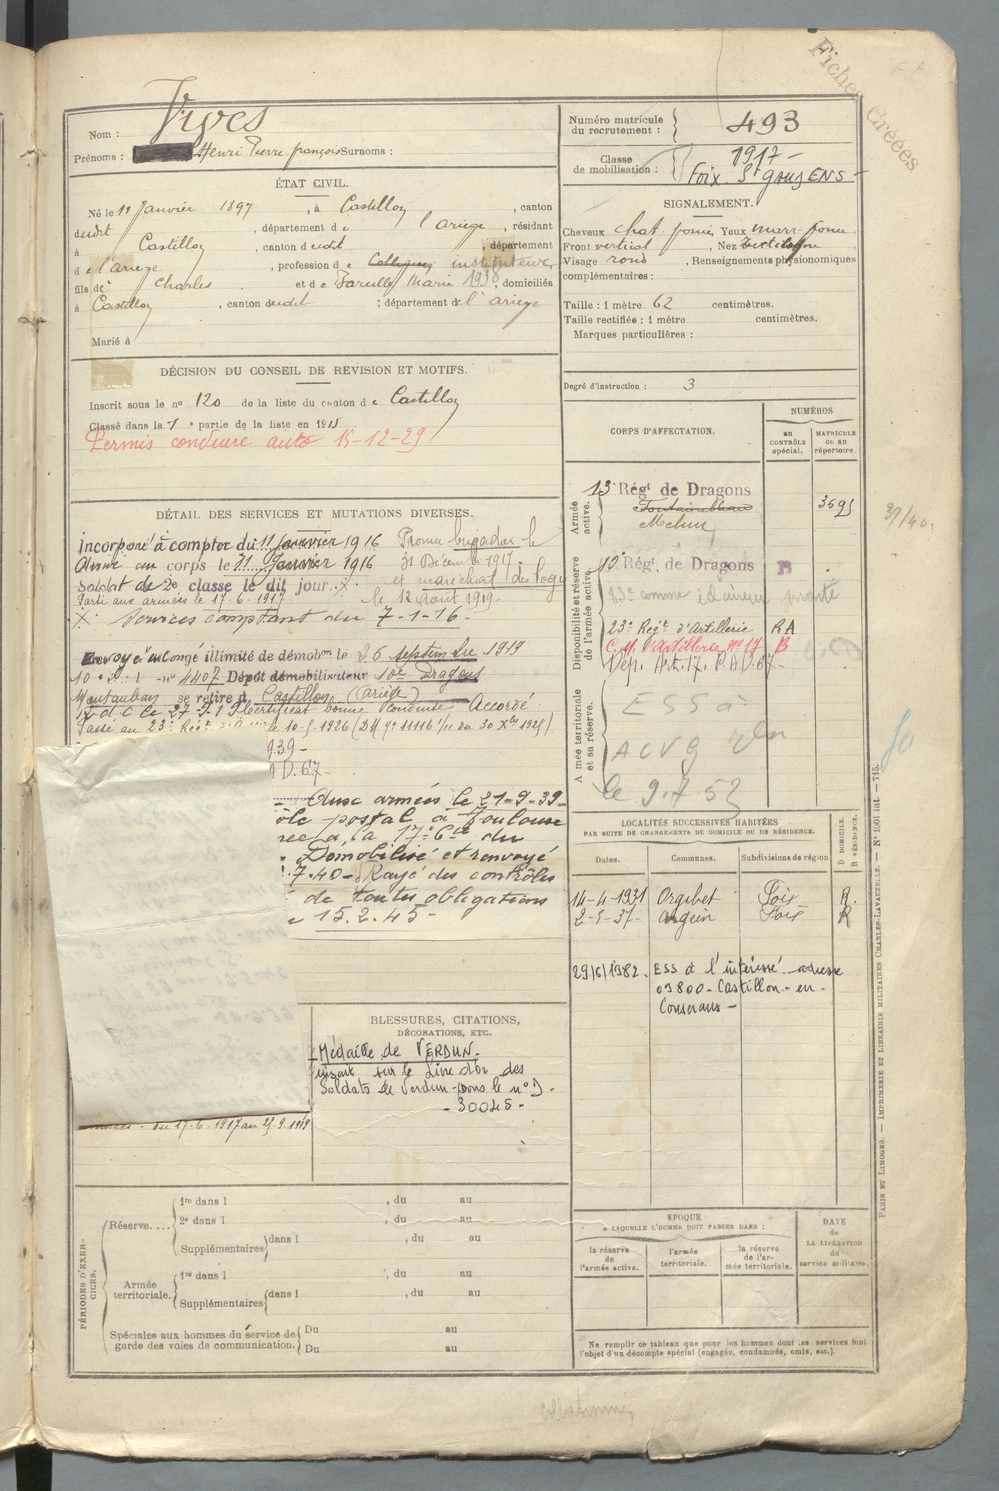 Fiches Créées
Nom : Vives
Prénoms : Henri Pierre françois Surnoms :
ÉTAT CIVIL.
Né le 11 Janvier 1897, à Castillon, canton
dudit, département de l'ariège, résidant
à Castillon, canton dudit, département
de l'ariège, profession de Collégien instituteur
fils de Charles et de Marie 1938, domiciliés
à Castillon, canton dudit ; département de l'ariège
Marié à
DÉCISION DU CONSEIL DE REVISION ET MOTIFS.
Inscrit sous le n° 120 de la liste du canton de Castillon
Classé dans la 1e partie de la liste en 1915
Permis conduire auto 15-12-29
DÉTAIL DES SERVICES ET MUTATIONS DIVERSES.
Incorporé à compter du 11 Janvier 1916 Promu brigadier le
Arrivé au corps le Janvier 1916 31 Décembre 1917
Soldat de 2e classe le dit jour. X. et maréchal des logis
Parti aux armées le 17.6.1917 le 12 août 1919
X Services comptant du 7-1-16.
Envoyé en congé illimité de démobon le 26 septembre 1919
4407 Dépôt démobilisateur 10e Dragons
Montauban se retire à Castillon (Ariège)
Certificat bonne Conduite Accordé.
Passé au 23e Régt le 10-5-1926
939-
D.67-
armées le 21-9-39-
postal à Toulouse
la 17e du
Démobilisé et renvoyé
7.40- Rayé des contrôles
de toutes obligations
15.2.45-
du 17-6-1917 au
BLESSURES, CITATIONS,
DÉCORATIONS, ETC.
Médaille de VERDUN.
inscrit sur le Livre d'or des
Soldats de Verdun sous le n°
- 30045 -
PÉRIODES D'EXERCICES.
Réserve....
1re dans l , du au
2e dans l , du au
Supplémentaires dans l , du au
Armée territoriale.
1re dans l , du au
Supplémentaires dans l , du au
Spéciales aux hommes du service de garde des voies de communication.
Du au
Du au
Numéro matricule du recrutement : 493
Classe de mobilisation : 1917-
Foix St GAUDENS-
SIGNALEMENT.
Cheveux chat. foncé Yeux marr. foncé
Front vertical, Nez rectiligne
Visage rond, Renseignements physionomiques
complémentaires :
Taille : 1 mètre 62 centimètres.
Taille rectifiée : 1 mètre centimètres.
Marques particulières :
Degré d'instruction : 3
CORPS D'AFFECTATION.
NUMÉROS
AU CONTRÔLE spécial.
MATRICULE OU AU répertoire.
Armée active.
13e Régt de Dragons 3695
Fontainebleau
Melun
Disponibilité et réserve de l'armée active.
10e Régt de Dragons B
23e Regt d'Artillerie RA
C.M. d'artillerie n° 17 B
Dép. Art. 17. P.A.D. 67-
Armée territoriale et sa réserve.
ESS à
ACVG
le 9.7.52
39/40.
LOCALITÉS SUCCESSIVES HABITÉES
PAR SUITE DE CHANGEMENTS DE DOMICILE OU DE RÉSIDENCE.
Dates. Communes. Subdivisions de région D DOMICILE R RÉSIDENCE.
14-4-1931 Orgibet Foix R.
2-5-37- Argein Foix R
29/6/1982. ESS à l'intéressé - adresse
09800 - Castillon - en -
Couserans -
EPOQUE
A LAQUELLE L'HOMME DOIT PASSER DANS :
la réserve de l'armée active.
l'armée territoriale.
la réserve de l'armée territoriale.
DATE de LA LIBÉRATION du service militaire.
Ne remplir ce tableau que pour les hommes dont les services font
l'objet d'un décompte spécial (engagés, condamnés, omis, etc.).
PARIS ET LIMOGES. — IMPRIMERIE ET LIBRAIRIE MILITAIRES CHARLES-LAVAUZELLE. — N° 1001 int. — 715.